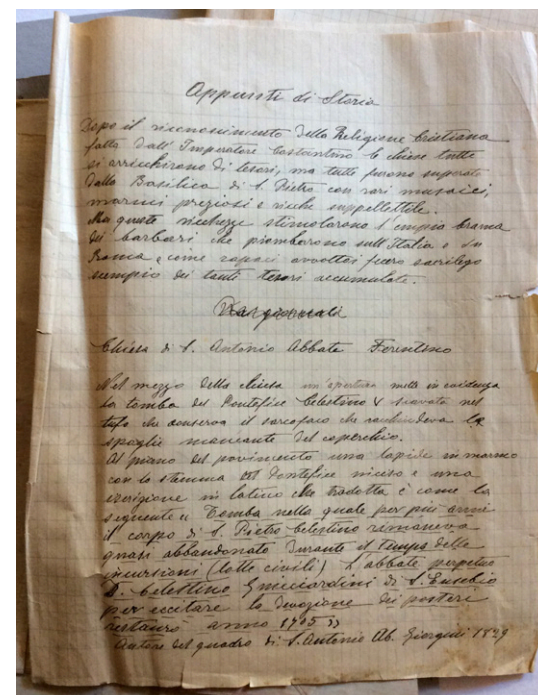 Appunti di Storia
Dopo il riconoscimento della Religione Cristiana
fatta dall'Imperatore Costantino le chiese tutte
si arricchirono di tesori, ma tutte furono superate
dalla Basilica di S. Pietro con rari musaici,
marmi preziosi e ricche suppellettole.
Ma queste ricchezze stimolarono l'empia brama
dei barbari, che piombarono sull'Italia e su
Roma e come rapaci avvoltoi fecero sacrilego
scempio dei tanti tesori accumulate.
Chiesa di S. Antonio Abbate Ferentino
Nel mezzo della chiesa un'apertura mette in evidenza
la tomba del Pontefice Celestino V scavata nel
tufo che conserva il sarcofaco che racchiudeva le
spoglie mancante del coperchio.
Al piano del pavimento una lapide in marmo
con lo stemma del Pontefice inciso e una
iscrizione in latino che tradotta è come la
seguente « Tomba nella quale per più anni
il corpo di S. Pietro Celestino rimaneva
quasi abbandonato durante il tempo delle
incursioni (lotte civili) L'abbate perpetuo
D. Celestino Guicciardini di S. Eusebio
per eccitare la devozione dei posteri
restaurò anno 1705 »
Autore del quadro di S. Antonio Ab. Giorgini 1829